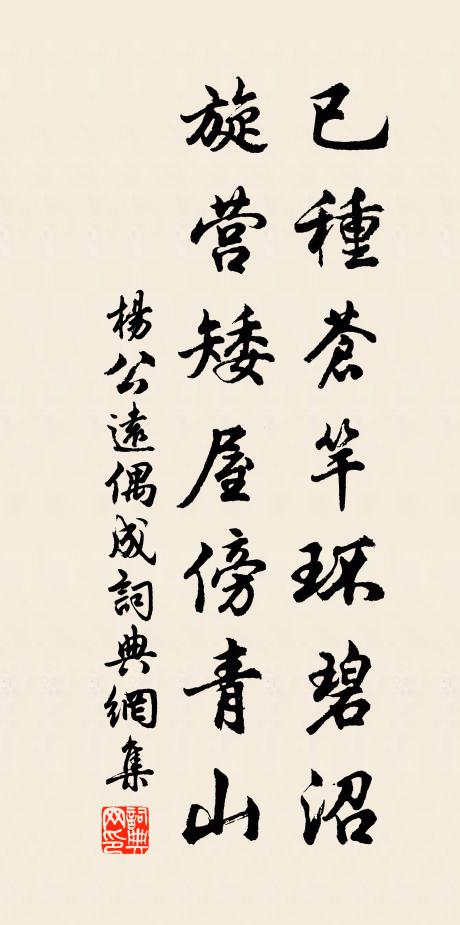 已種蒼竿环碧沼
旋营矮屋傍青山
楊公遠偶成詞典網集
詞典网印